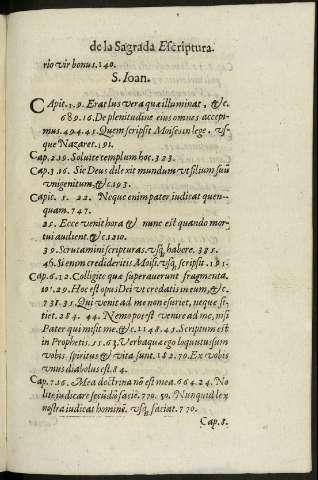 de la Sagrada Escriptura.
rio vir bonus. 140.
S. Ioan.
CApit. 1.9. Erat lux vera quæ illuminat, &c.
689. 16. De plenitudine eius omnes accepi-
mus. 494. 45. Quem scripsit Moises in lege, vs-
que Nazaret. 191.
Cap. 2.19. Soluite templum hoc. 323.
Cap. 3.16. Sic Deus dilexit mundum vt filium suũ
vnigenitum, &c. 193.
Capit. 5. 22. Neque enim pater iudicat quen-
quam. 747.
25. Ecce venit hora & nunc est quando mor-
tui audient. &c. 1210.
39. Scrutamini scripturas. vsq; habere. 385.
46. Si enim crederitis Moisi. vsq; scripsit. 191.
Cap. 6.12. Colligite quæ superauerunt fragmenta.
101. 29. Hoc est opus Dei vt credatis in eum, &c.
731. 35. Qui venit ad me non esuriet, neque si-
tiet. 284. 44. Nemo potest venire ad me, nisi
Pater qui misit me. &c. 1148. 45. Scriptum est
in Prophetis. 55. 63. Verba quæ ego loquutus sum
vobis. spiritus & vita sunt. 182. 70. Ex vobis
vnus diabolus est. 84.
Cap. 7.16. Mea doctrina nõ est mea. 664. 24. No
lite iudicare secũdũ faciẽ. 770. 50. Nunquid lex
nostra iudicat hominẽ. vsq; faciat. 770.
Cap. 8.